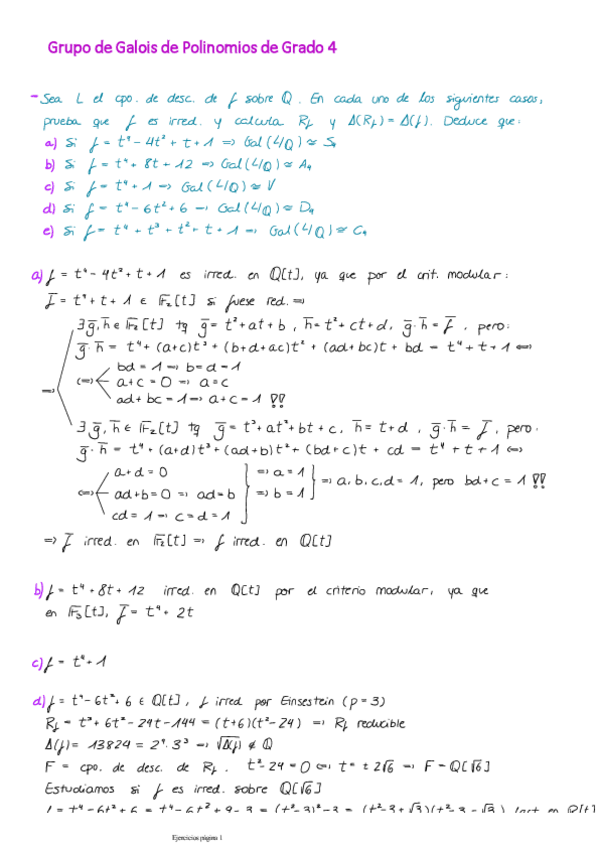 Grupo de Galois de Polinomios de Grado 4
- Sea L el cpo. de desc. de f sobre Q. En cada uno de los siguientes casos,
prueba que f es irred. y calcula Rf y Δ(Rf) = Δ(f). Deduce que:
a) Si f = t⁴ - 4t² + t + 1 => Gal(L/Q) ≈ S₄
b) Si f = t⁴ + 8t + 12 => Gal(L/Q) ≈ A₄
c) Si f = t⁴ + 1 => Gal(L/Q) ≈ V
d) Si f = t⁴ - 6t² + 6 => Gal(L/Q) ≈ D₄
e) Si f = t⁴ + t³ + t² + t + 1 => Gal(L/Q) ≈ C₄
a) f = t⁴ - 4t² + t + 1 es irred. en Q[t], ya que por el crit. modular:
f̄ = t⁴ + t + 1 ∈ F₂[t] si fuese red. =>
∃ ḡ, h̄ ∈ F₂[t] tq ḡ = t² + at + b, h̄ = t² + ct + d, ḡ·h̄ = f̄, pero:
ḡ·h̄ = t⁴ + (a+c)t³ + (b+d+ac)t² + (ad+bc)t + bd = t⁴ + t + 1 <=>
bd = 1 => b = d = 1
=> <=> a + c = 0 => a = c
ad + bc = 1 => a + c = 1 !!
∃ ḡ, h̄ ∈ F₂[t] tq ḡ = t³ + at² + bt + c, h̄ = t + d, ḡ·h̄ = f̄, pero:
ḡ·h̄ = t⁴ + (a+d)t³ + (ad+b)t² + (bd+c)t + cd = t⁴ + t + 1 <=>
a + d = 0 => a = 1
<=> ad + b = 0 => ad = b => b = 1 => a, b, c, d = 1, pero bd + c = 1 !!
cd = 1 => c = d = 1
=> f̄ irred. en F₂[t] => f irred. en Q[t]
b) f = t⁴ + 8t + 12 irred. en Q[t] por el criterio modular, ya que
en F₃[t], f̄ = t⁴ + 2t
c) f = t⁴ + 1
d) f = t⁴ - 6t² + 6 ∈ Q[t], f irred por Einsestein (p = 3)
Rf = t³ + 6t² - 24t - 144 = (t+6)(t² - 24) => Rf reducible
Δ(f) = 13824 = 2⁹·3³ => √Δ(f) ∉ Q
F = cpo. de desc. de Rf. t² - 24 = 0 <=> t = ± 2√6 => F = Q[√6]
Estudiamos si f es irred. sobre Q[√6]
f = t⁴ - 6t² + 6 = t⁴ - 6t² + 9 - 3 = (t² - 3)² - 3 = (t² - 3 + √3)(t² - 3 - √3)
Ejercicios página 1